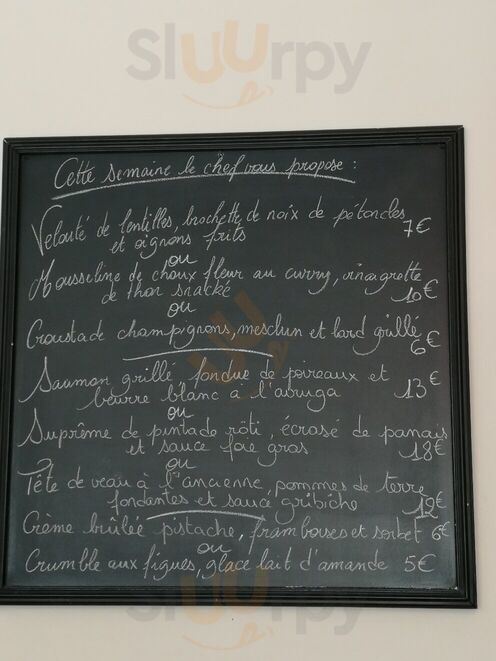 Sluurpy
Cette semaine le chef vous propose :
Velouté de lentilles, brochette de noix de pétoncles
et oignons frits 7€
ou
Mousseline de choux fleur au curry, vinaigrette
de thon snacké 10€
ou
Croustade champignons, mesclun et lard grillé
6€
Saumon grillé, fondue de poireaux et
beurre blanc à l'avruga 13€
ou
Suprême de pintade rôti, écrasé de panais
et sauce foie gras 18€
ou
Tête de veau à l'ancienne, pommes de terre
fondantes et sauce gribiche 12€
Crème brûlée pistache, framboises et sorbet 6€
ou
Crumble aux figues, glace lait d'amande 5€
Sluurpy